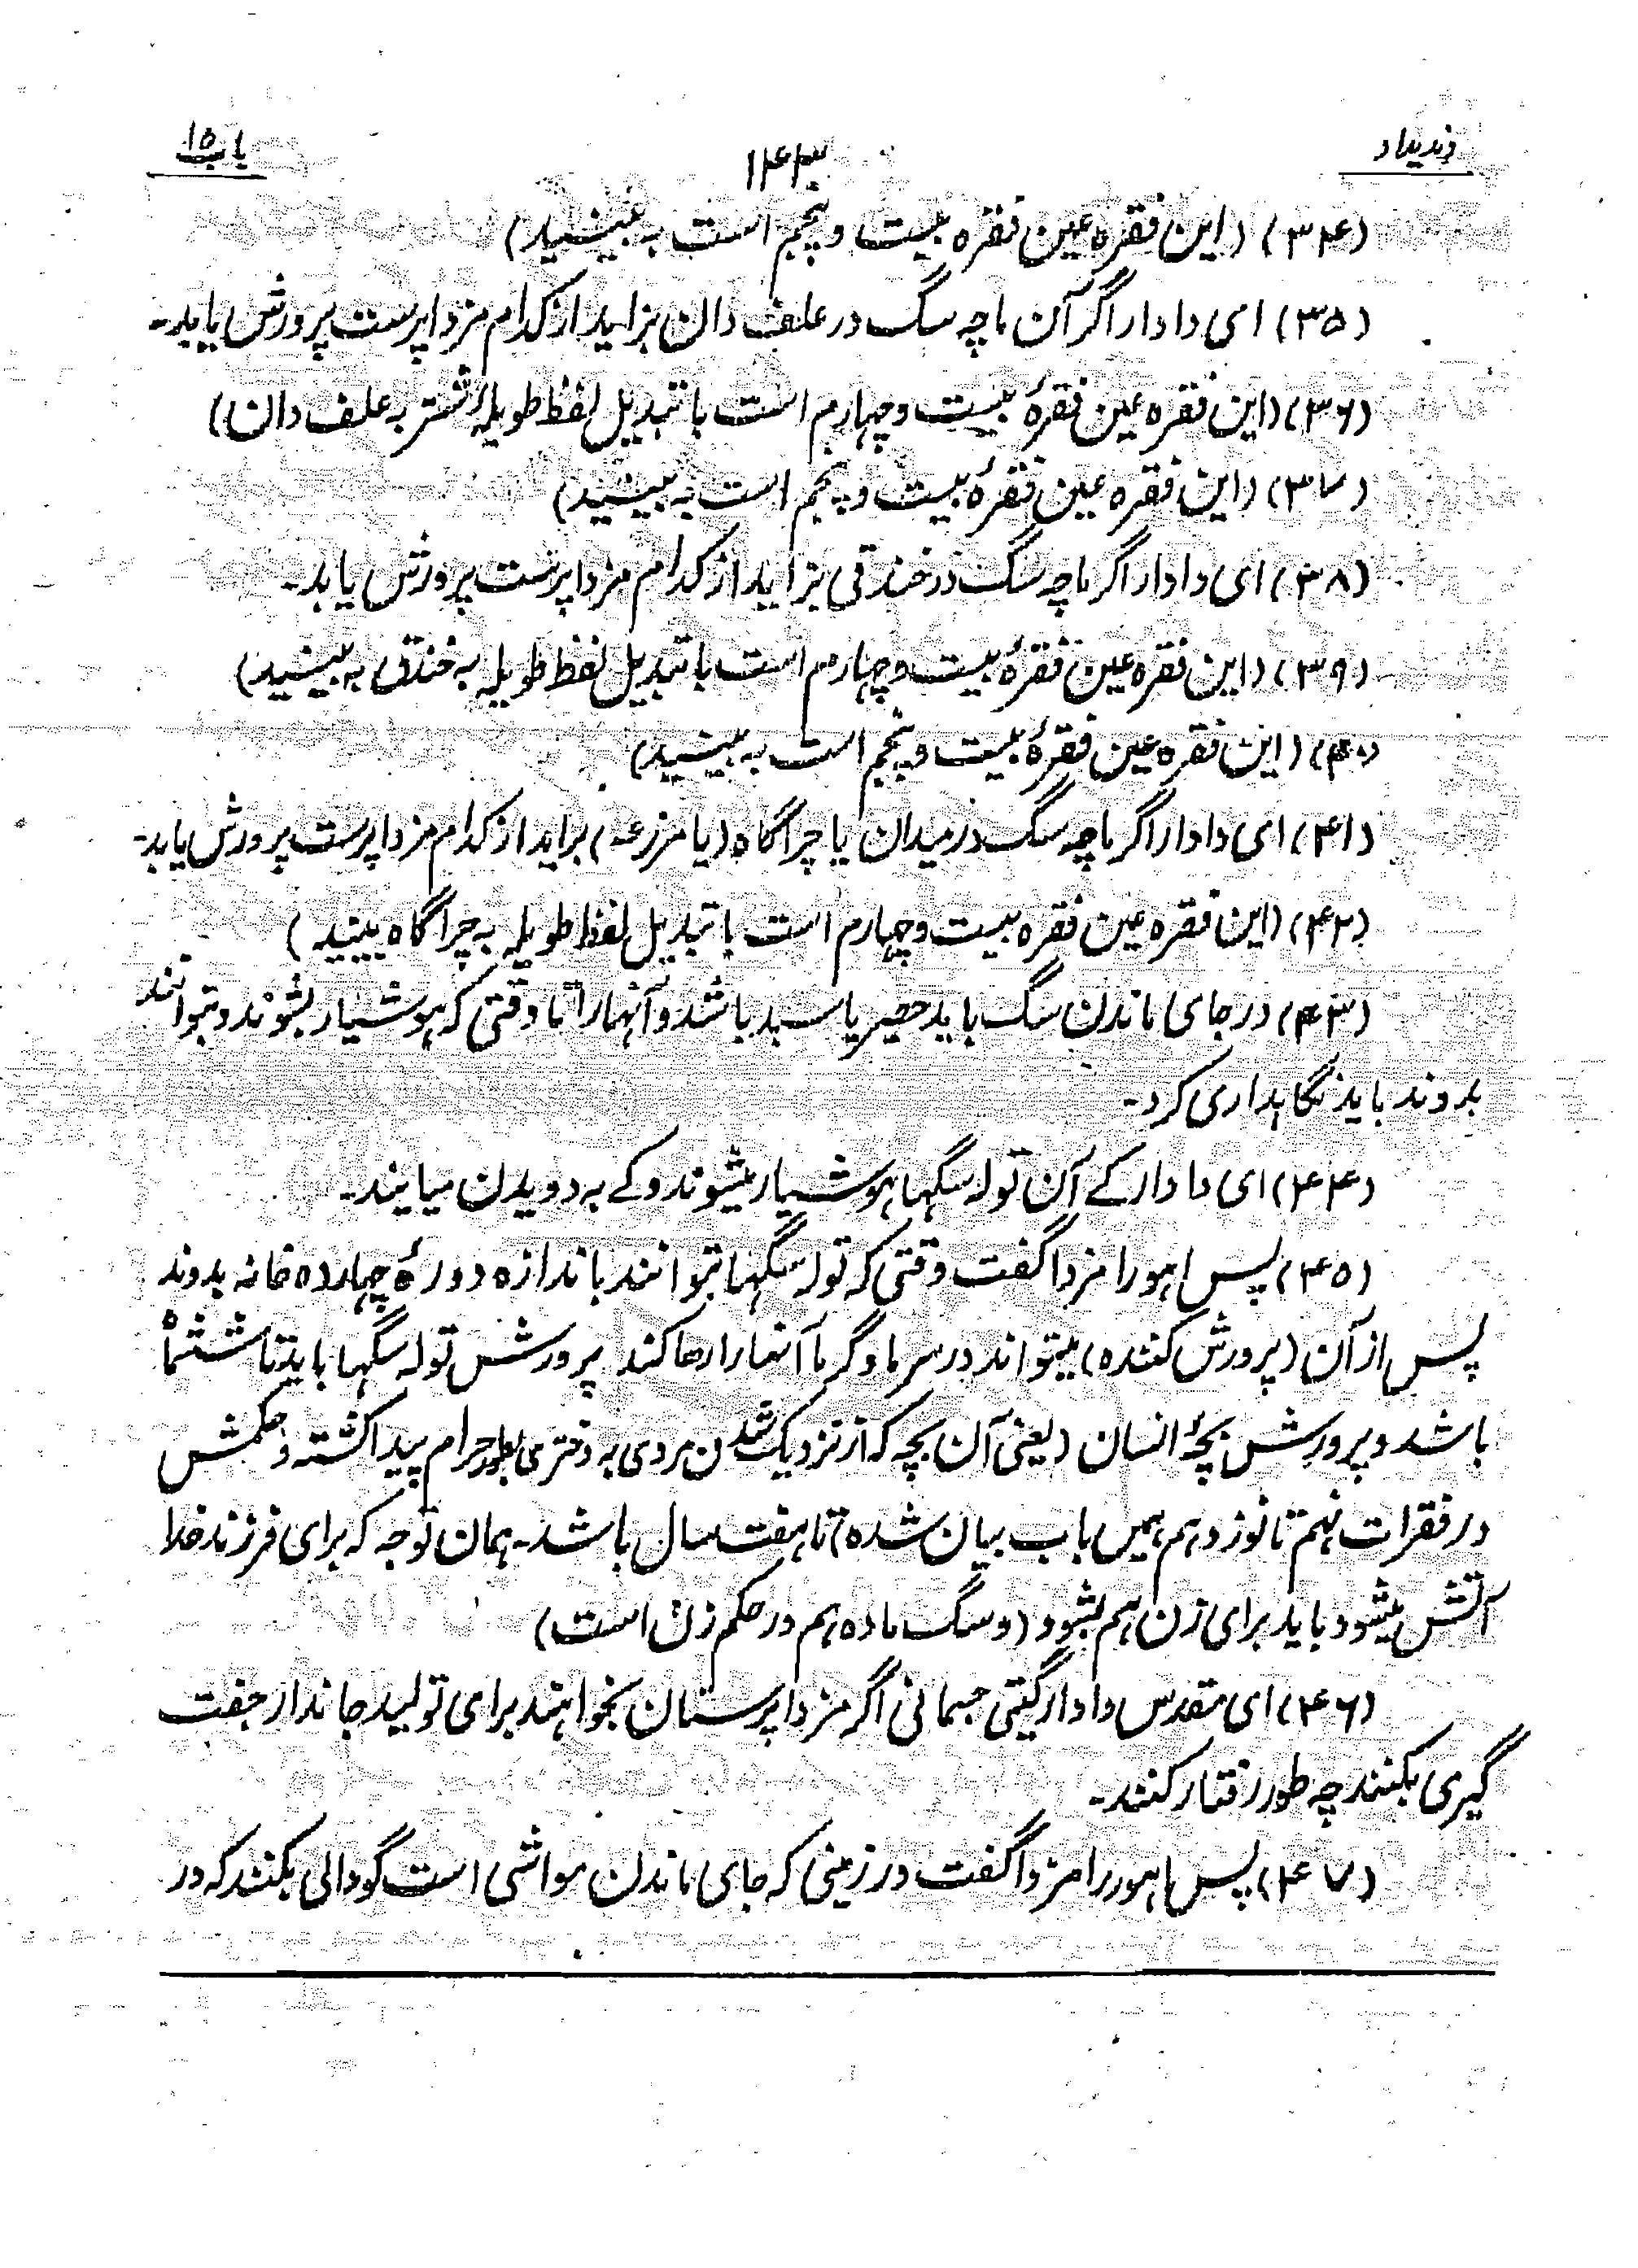 وندیداد
۱۴۳
باب ۱۵
(۳۴) (این فقره عین فقره بیست و پنجم است به بینید)
(۳۵) ای دادار اگر آن ماچه سگ در علف دان بزاید از کدام مزداپرست پرورش یابد-
(۳۶) (این فقره عین فقرهٔ بیست و چهارم است با تبدیل لفظ طویلهٔ شتر به علف دان)
(۳۷) (این فقره عین فقرهٔ بیست و پنجم است به بینید)
(۳۸) ای دادار اگر ماچه سگ در خندقی بزاید از کدام مزداپرست پرورش یابد-
(۳۹) (این فقره عین فقرهٔ بیست و چهارم است با تبدیل لفظ طویله به خندق به بینید)
(۴۰) (این فقره عین فقرهٔ بیست و پنجم است به بینید)
(۴۱) ای دادار اگر ماچه سگ در میدان یا چراگاه (یا مزرعه) بزاید از کدام مزداپرست پرورش یابد-
(۴۲) (این فقره عین فقره بیست و چهارم است با تبدیل لفظ طویله به چراگاه ببینید)
(۴۳) در جای ماندن سگ باید حصیر یا سبد باشد و آنهارا تا وقتی که هوشیار بشوند و بتوانند
بدوند باید نگاهداری کرد-
(۴۴) ای دادار کے آن توله سگها هوشیار میشوند و کے به دویدن میایند-
(۴۵) پس اهورا مزدا گفت وقتی که توله سگها بتوانند باندازه دورهٔ چهارده خانه بدوند
پس از آن (پرورش کننده) میتواند در سرما و گرما آنهارا رها کند پرورش توله سگها باید تا ششماه
باشد و پرورش بچهٔ انسان (یعنی آن بچه که از نزدیک شدن مردی به دختری بطور حرام پیدا گشته و حکمش
در فقرات نهم تا نوزدهم همین باب بیان شده) تا هفت سال باشد- همان توجه که برای فرزند خدا
آتش میشود باید برای زن هم بشود (و سگ ماده هم در حکم زن است)
(۴۶) ای مقدس دادار گیتی جسمانی اگر مزداپرستان بخواهند برای تولید جاندار جفت
گیری بکنند چه طور رفتار کنند-
(۴۷) پس اهورا مزدا گفت در زمینی که جای ماندن مواشی است گودالی بکنند که در